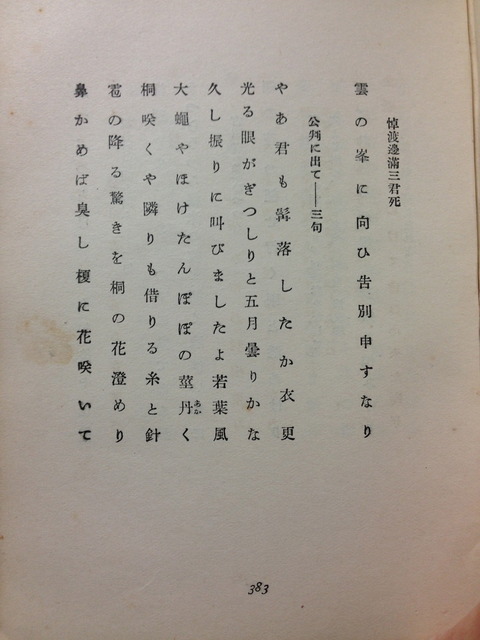 悼渡邊滿三君死
雲の峯に向ひ告別申すなり
公判に出て――三句
やあ君も髯落したか衣更
光る眼がぎつしりと五月曇りかな
久し振りに叫びましたよ若葉風
大蠅やほけたんぽぽの莖丹く
あか
桐咲くや隣りも借りる糸と針
雹の降る驚きを桐の花澄めり
鼻かめば臭し榎に花咲いて
383